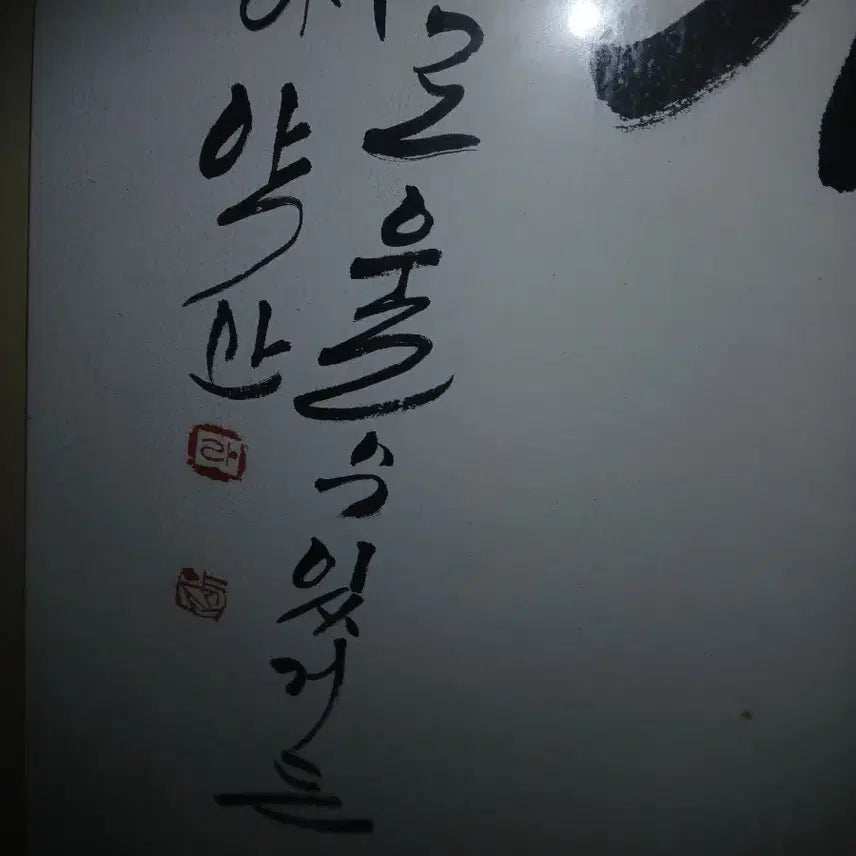 로울수있거든
약산